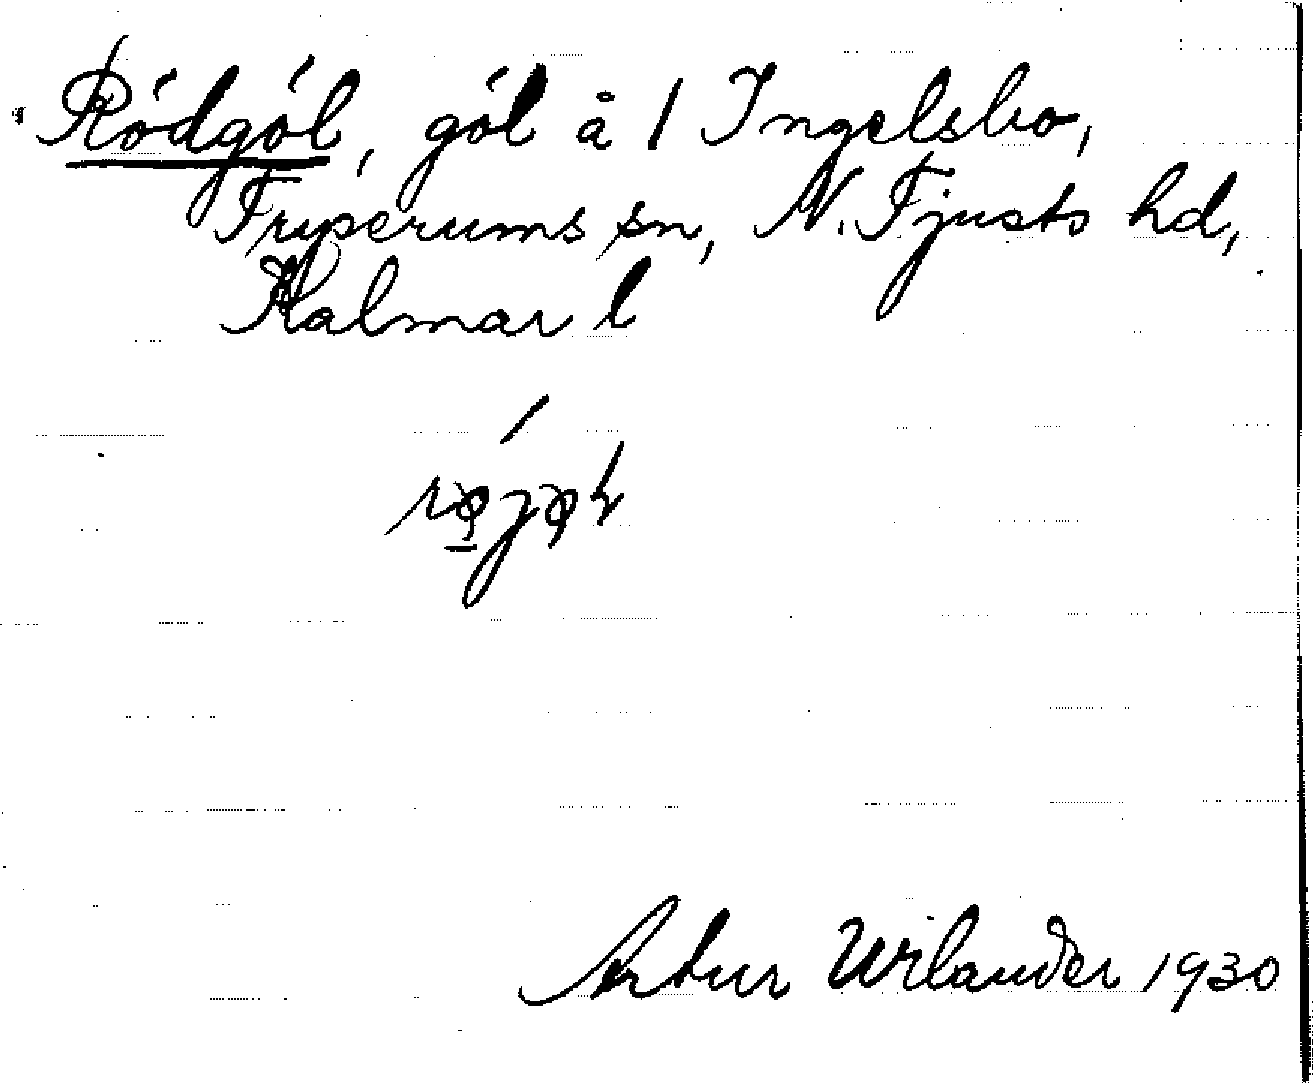 Ródgól, gól å 1 Ingelsbo,
Tryserums sn, N. Tjusts hd,
Kalmar l
Artur Wilander 1930